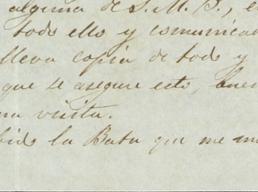 alguna de S. M. B., e
todo ello y comunica
lleva copia de todo y
que se asegure este buen
na visita.
bido la Bata que me ma